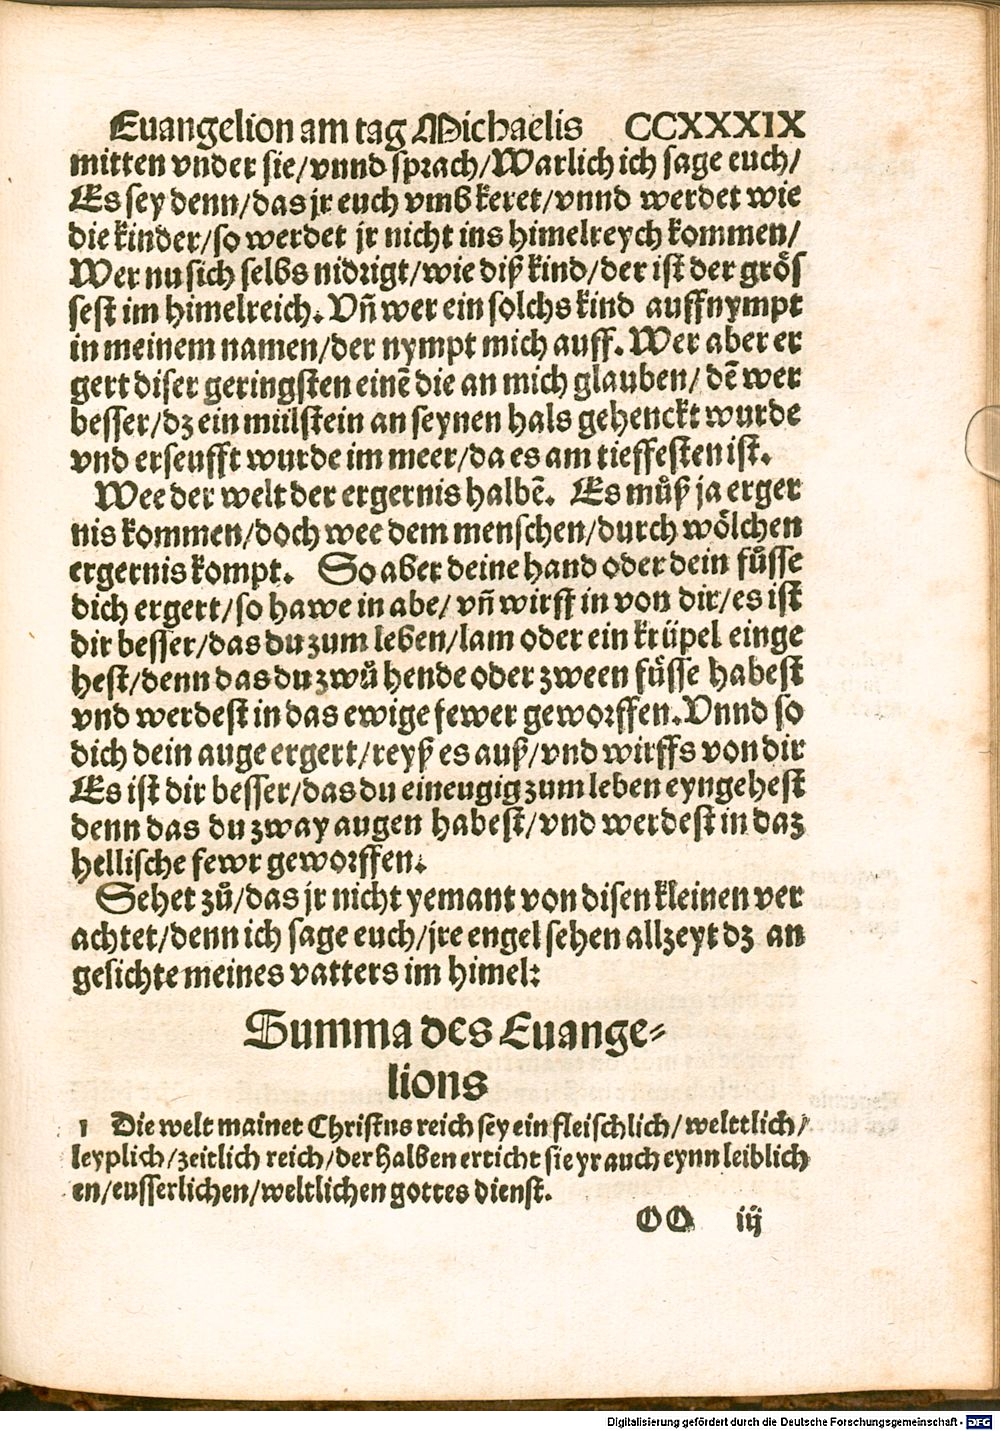 Euangelion am tag Michaelis CCXXXIX
mitten vnder sie/vnnd sprach/Warlich ich sage euch/
Es sey denn/das jr euch vmb keret/vnnd werdet wie
die kinder/so werdet jr nicht ins himelreych kommen/
Wer nu sich selbs nidrigt/wie diß kind/der ist der grös
sest im himelreich. Vñ wer ein solchs kind auffnympt
in meinem namen/der nympt mich auff. Wer aber er
gert diser geringsten einẽ die an mich glauben/dẽ wer
besser/dz ein mülstein an seynen hals gehenckt wurde
vnd erseufft wurde im meer/da es am tieffesten ist.
Wee der welt der ergernis halbẽ. Es můß ja erger
nis kommen/doch wee dem menschen/durch wölchen
ergernis kompt. So aber deine hand oder dein fůsse
dich ergert/so hawe in abe/vñ wirff in von dir/es ist
dir besser/das du zum leben/lam oder ein krüpel einge
hest/denn das du zwů hende oder zween füsse habest
vnd werdest in das ewige fewer geworffen. Vnnd so
dich dein auge ergert/reyß es auß/vnd wirffs von dir
Es ist dir besser/das du eineugig zum leben eyngehest
denn das du zway augen habest/vnd werdest in daz
hellische fewr geworffen.
Sehet zů/das jr nicht yemant von disen kleinen ver
achtet/denn ich sage euch/jre engel sehen allzeyt dz an
gesichte meines vatters im himel:
Summa des Euange-
lions
1 Die welt mainet Christus reich sey ein fleischlich/welttlich/
leyplich/zeitlich reich/der halben erticht sie yr auch eynn leiblich
en/eusserlichen/weltlichen gottes dienst.
OO iij
Digitalisierung gefördert durch die Deutsche Forschungsgemeinschaft - DFG